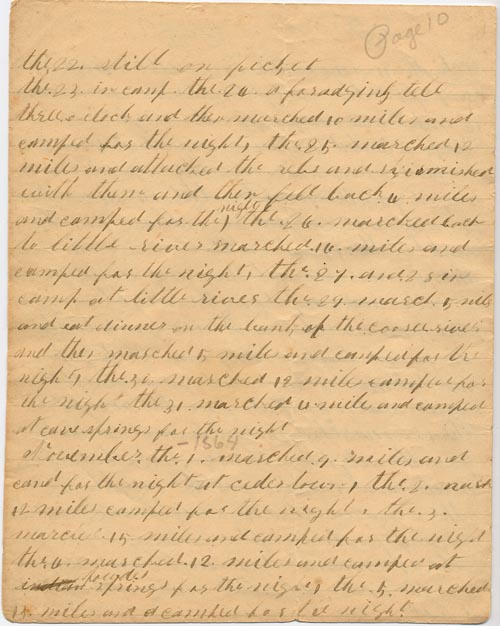 Page 10
the 22. still on picket
the 23. in camp the 24. a foradging tell
three o clock and then marched 10 miles and
camped for the night, the 25. marched 12
miles and attacked the rebs and scirmished
with them and then fell back 4 miles
and camped for the night, the 26. marched back
to little river marched. 16. miles and
camped for the night, the 27. and 28 in
camp at little river the 29. march. 5 mile
and eat dinner on the bank of the coosee river
and then marched 5 miles and camped for the
night, the 30. marched 12 miles camped for
the night the 31. marched 4 mile and camped
at cave springs for the night
November. the 1. marched 9. miles and
camd for the night at ceder town, the 2. march
12 miles camped for the night, the 3.
marched 15 miles and camped for the night
the 4. marched. 12. miles and camped at
springs for the night, the 5. marched
15. miles and camped for the night.
- 1864